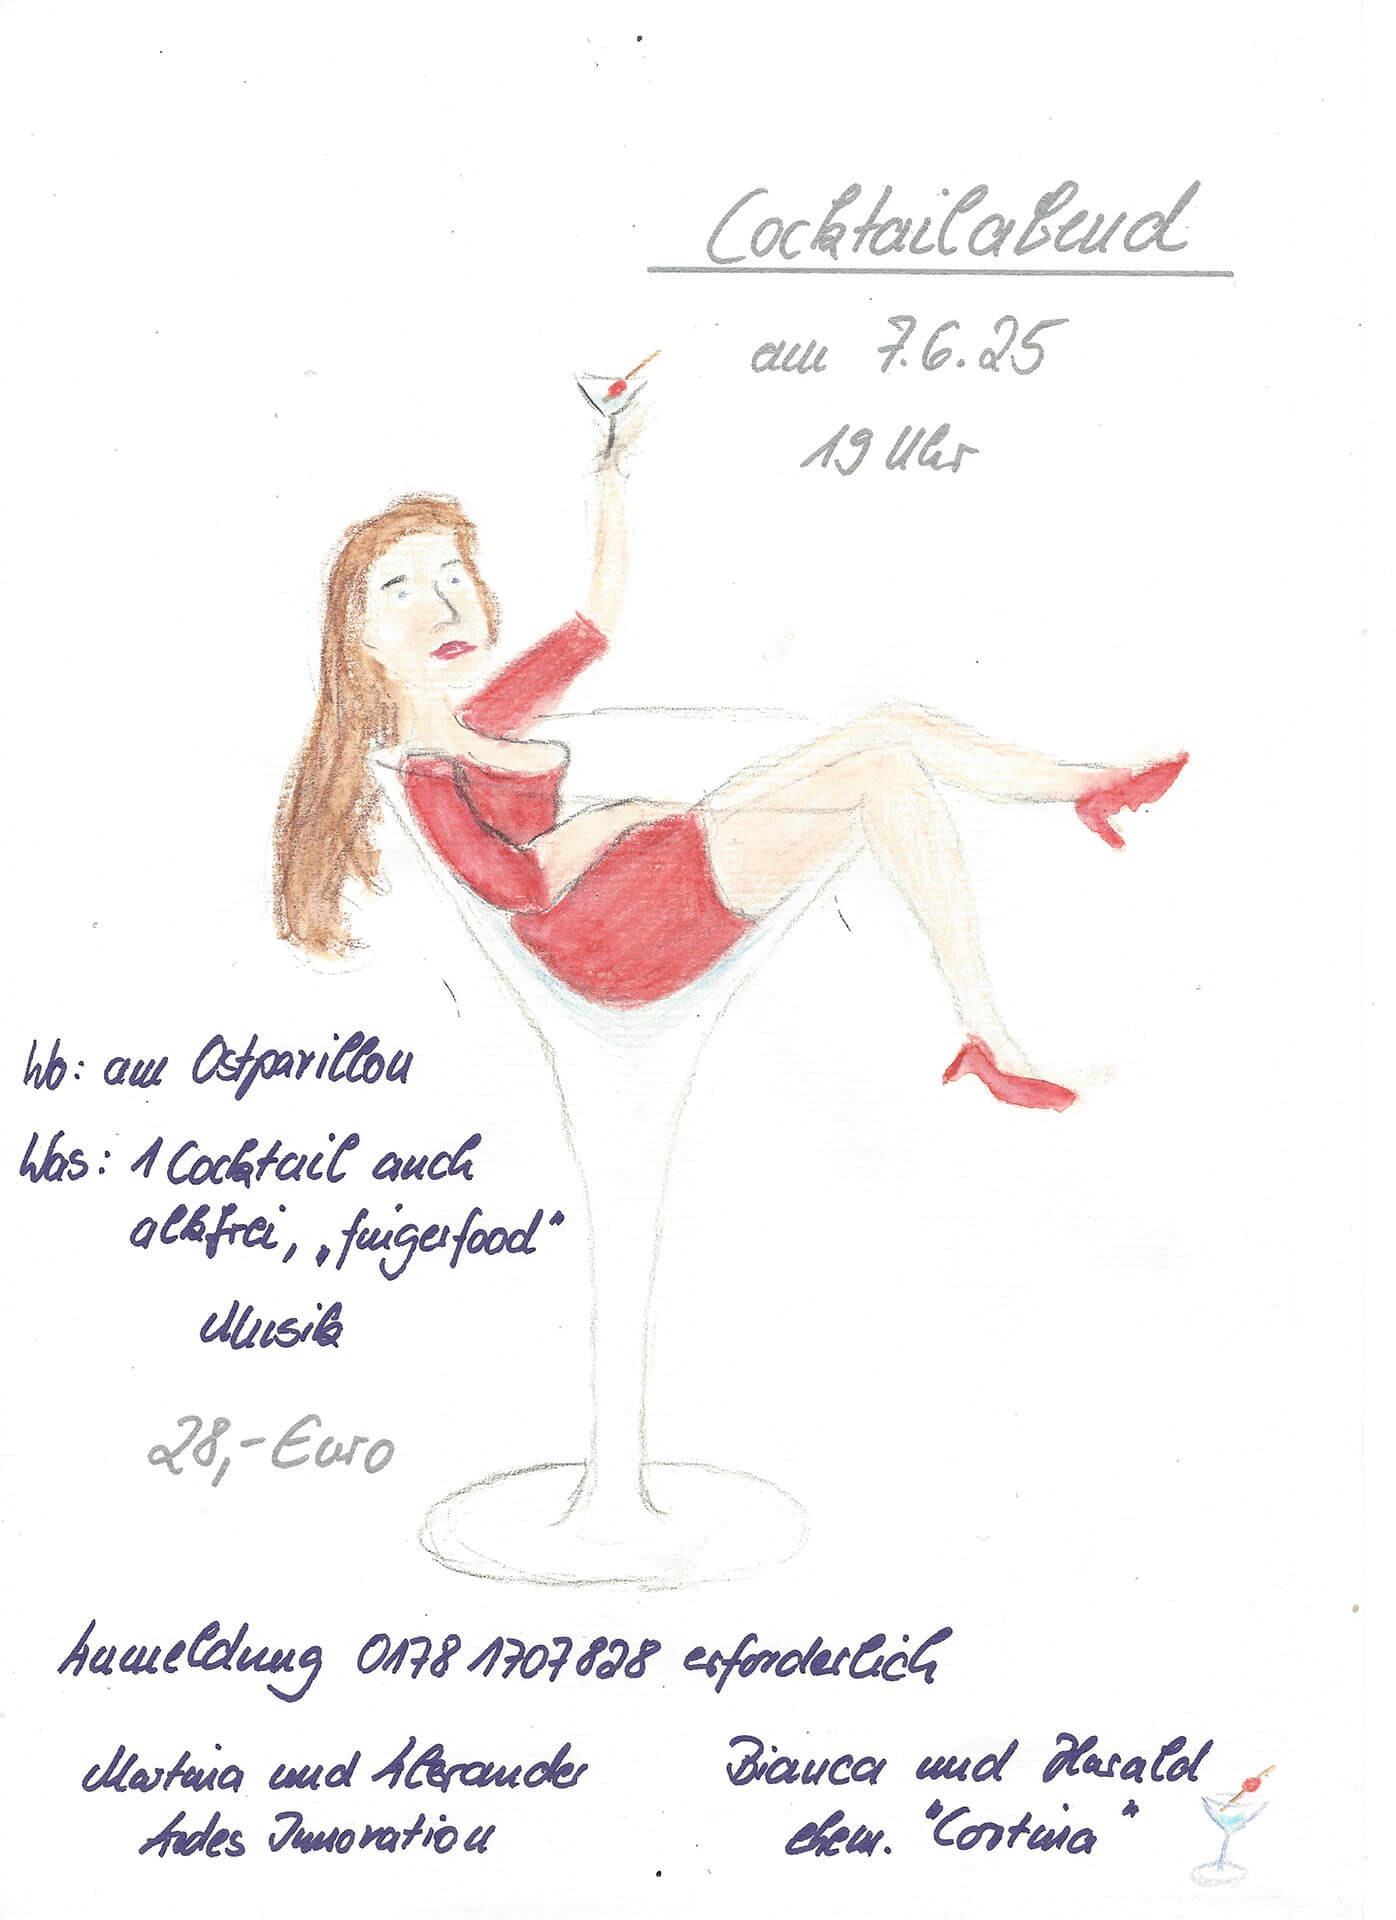 Cocktailabend
am 7.6.25
19 Uhr
Wo: am Ostpavillon
Was: 1 Cocktail auch
alkfrei, „fingerfood“
Musik
28,- Euro
Anmeldung 0178 1707828 erforderlich
Martina und Alexander
Andes Innovation
Bianca und Harald
ehem. "Cortina"